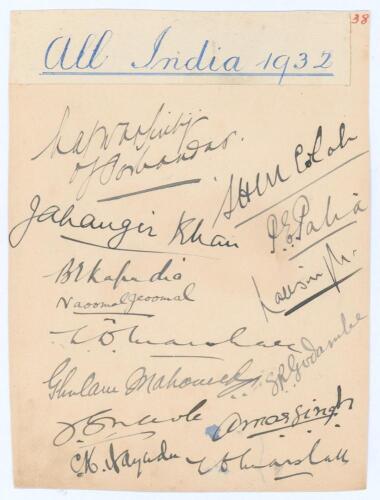 38
All India 1932
Natwarsinhji
of Porbandar.
SHM Colah
Jahangir Khan
P.E. Palia
B E Kapadia
Naoomal Jeoomal
Lall Singh.
Marshall
S.R. Godambe
Ghulam Mahomed
Navle
Amarsingh
C.K. Nayudu
Marshall